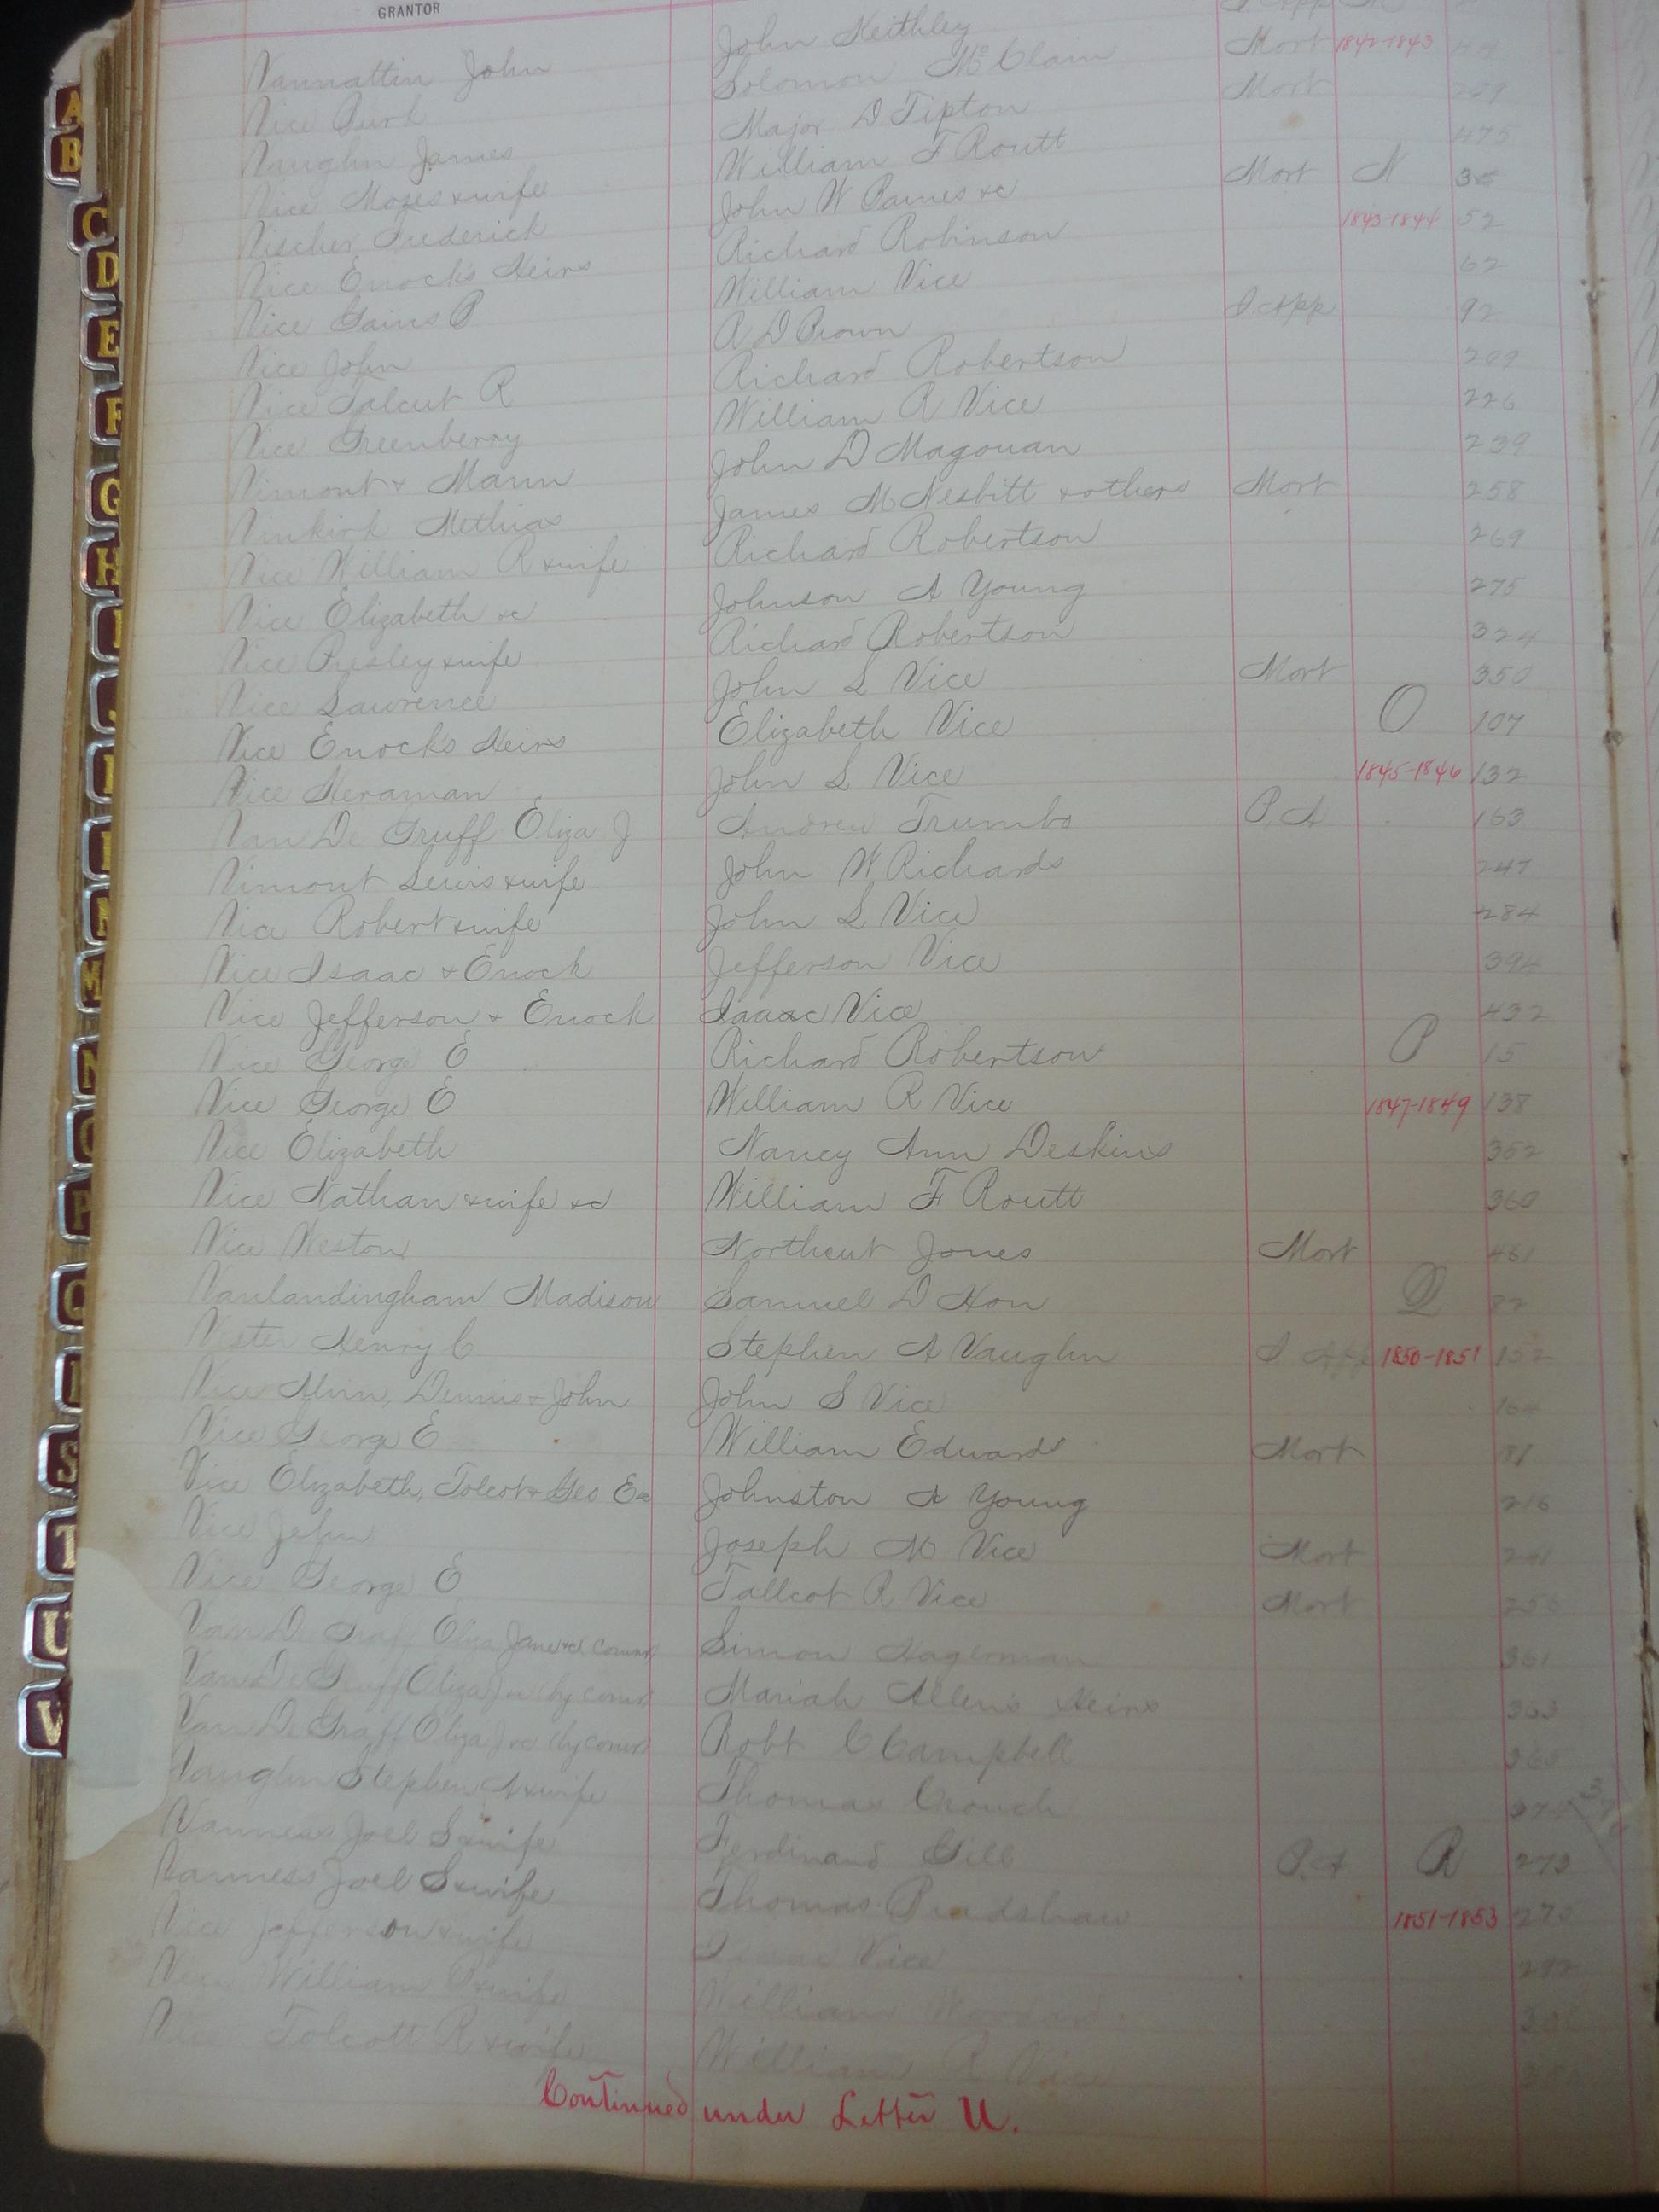 GRANTOR
Vannattin John John Keithley Mort 1842-1843
Vice Burk Solomon McClain Mort 209
Vaughn James Major D Tipton 475
Vice Moses & wife William F Routt Mort N 35
Vischer Frederick John W Barnes &c 1843-1844 52
Vice Enock's Heirs Richard Robinson 62
Vice Gains P William Vice D App 92
Vice John A D Brown 209
Vice Talcut R Richard Robertson 226
Vice Greenberry William R Vice 239
Vimont & Mann John D Magowan 258
Vinkirk Methias James M Nesbitt & others Mort 269
Vice William R & wife Richard Robertson 275
Vice Elizabeth &c Johnson A Young 324
Vice Presley & wife Richard Robertson 350
Vice Lawrence John L Vice Mort O 107
Vice Enock's Heirs Elizabeth Vice
Vice Heraman John L Vice 1845-1846 132
Van De Gruff Eliza J Andrew Trumbo P.A 163
Vimont Lewis & wife John W Richards 247
Vice Robert & wife John L Vice 284
Vice Isaac & Enock Jefferson Vice 394
Vice Jefferson & Enock Isaac Vice 432
Vice George E Richard Robertson P 15
Vice George E William R Vice 1847-1849 138
Vice Elizabeth Nancy Ann Deskins 352
Vice Nathan & wife &c William F Routt 360
Vice Weston Northcut Jones Mort 461
Vanlandingham Madison Samuel D Hon Q 82
Henry C Stephen A Vaughn D App 1850-1851 152
Vice Alvin, Dennis & John John S Vice 164
Vice George E William Edwards Mort
Vice Elizabeth, Tolcot & Geo E &c Johnston A Young 216
Vice John Joseph M Vice Mort 241
Vice George E Tallcot R Vice Mort
Van De Graff Eliza Jane &c Comr Simon Hagerman 361
Van De Graff Eliza J &c by comr Mariah Allen's Heirs 363
Van De Graff Eliza J &c by comr Robt C Campbell 365
Vaughn Stephen A & wife Thomas Crouch
Vanness Joel S & wife Ferdinand Gill P.A R 273
Vanness Joel S & wife Thomas Bradshaw 1851-1853
Vice Jefferson & wife Isaac Vice 292
Vice William & wife William
Vice Tolcott R & wife William R Vice
Continued under Letter U.
A
B
C
D
E
F
G
H
M
N
P
S
U
V